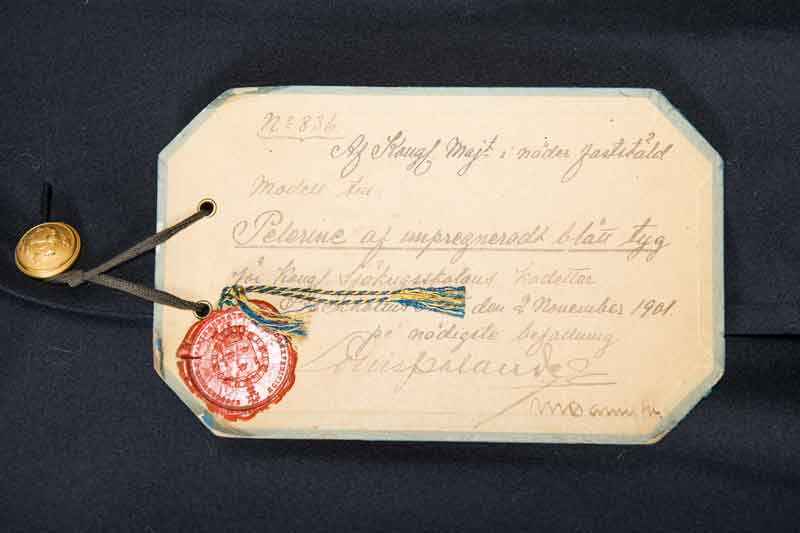 Nº 836.
Af Kongl Majt. i nåder fastställd
Modell till
Pelerine af impregneradt blått tyg
för Kongl Sjökrigsskolans kadetter
Stockholm den 2 November 1901
på nådigste befallning
Louis Palander